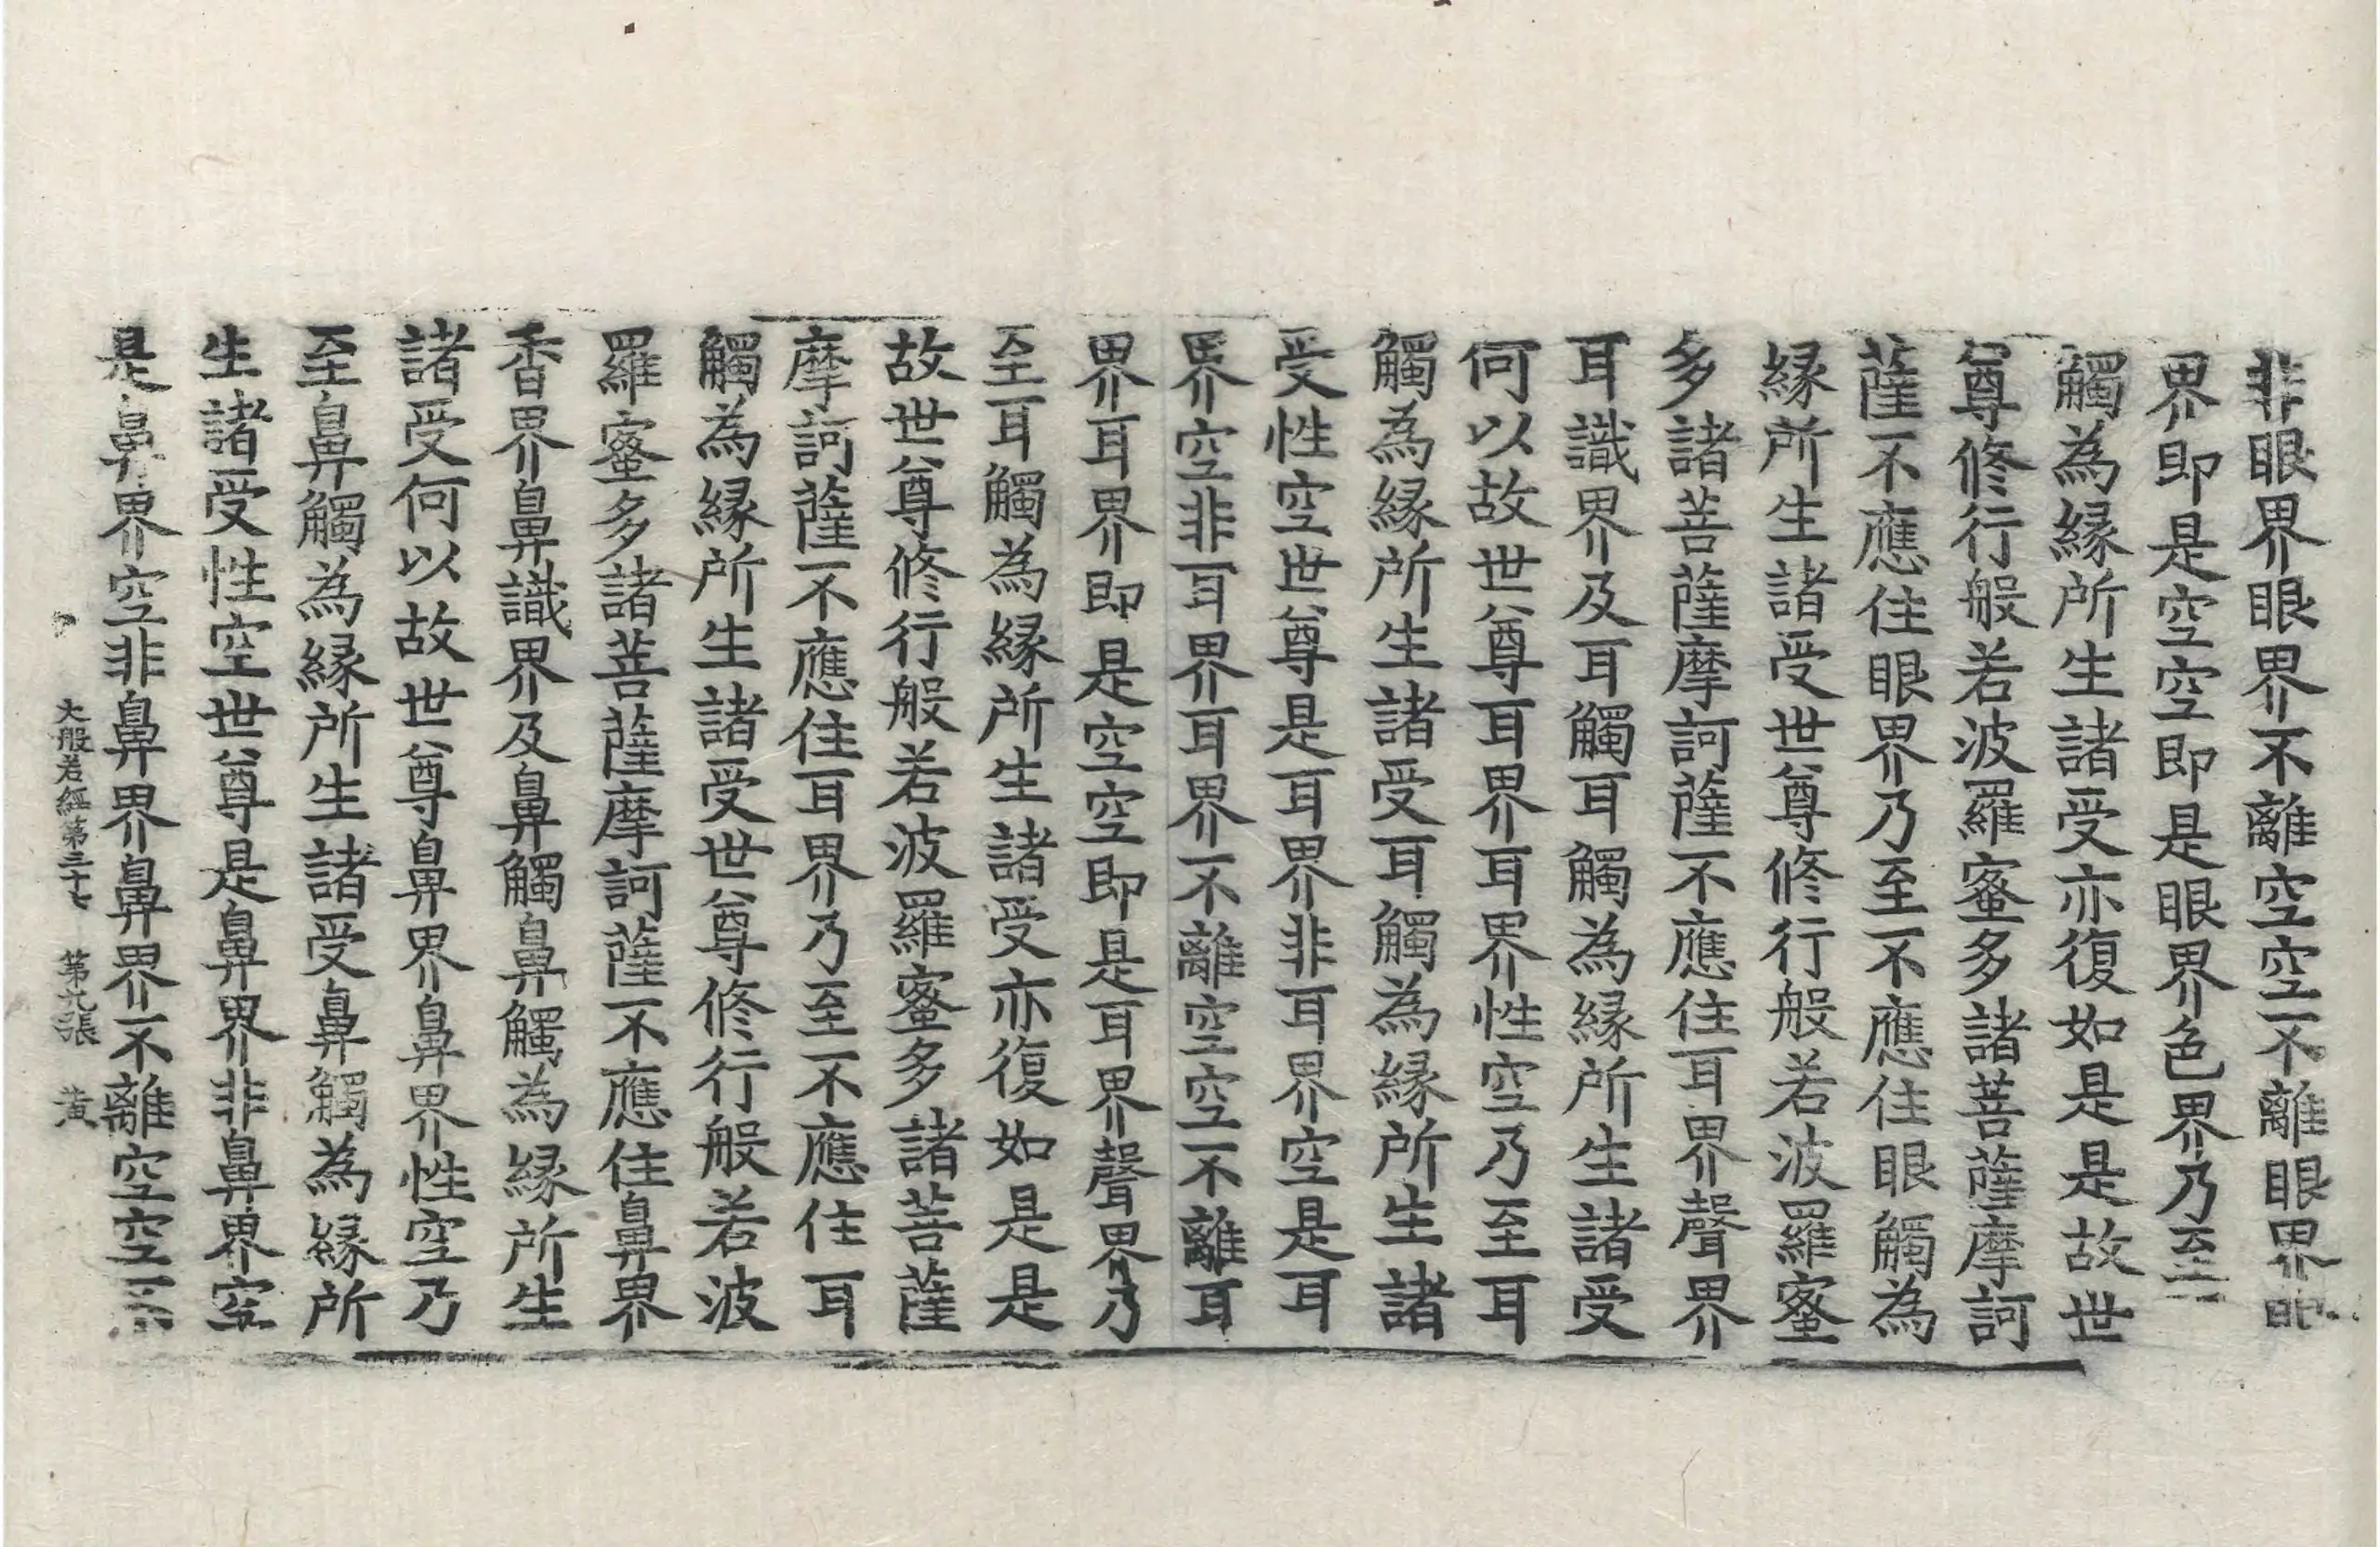 非眼界眼界不離空空不離眼界眼
界即是空空即是眼界色界乃至
觸為緣所生諸受亦復如是是故世
尊修行般若波羅蜜多諸菩薩摩訶
薩不應住眼界乃至不應住眼觸為
緣所生諸受世尊修行般若波羅蜜
多諸菩薩摩訶薩不應住耳界聲界
耳識界及耳觸耳觸為緣所生諸受
何以故世尊耳界耳界性空乃至耳
觸為緣所生諸受耳觸為緣所生諸
受性空世尊是耳界非耳界空是耳
界空非耳界耳界不離空空不離耳
界耳界即是空空即是耳界聲界乃
至耳觸為緣所生諸受亦復如是是
故世尊修行般若波羅蜜多諸菩薩
摩訶薩不應住耳界乃至不應住耳
觸為緣所生諸受世尊修行般若波
羅蜜多諸菩薩摩訶薩不應住鼻界
香界鼻識界及鼻觸鼻觸為緣所生
諸受何以故世尊鼻界鼻界性空乃
至鼻觸為緣所生諸受鼻觸為緣所
生諸受性空世尊是鼻界非鼻界空
是鼻界空非鼻界鼻界不離空空不
大般若經第三十七 第九張 黃